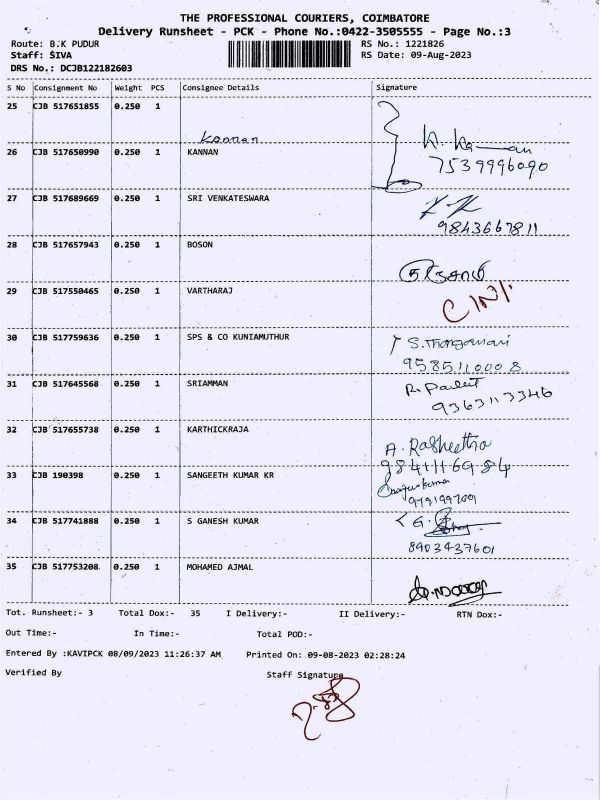 THE PROFESSIONAL COURIERS, COIMBATORE
Delivery Runsheet - PCK - Phone No.:0422-3505555 - Page No.:3
Route: B.K PUDUR RS No.: 1221826
Staff: SIVA RS Date: 09-Aug-2023
DRS No.: DCJB122182603
S No Consignment No Weight PCS Consignee Details Signature
25 CJB 517651855 0.250 1
Kannan
26 CJB 517650990 0.250 1 KANNAN
7539996090
27 CJB 517689669 0.250 1 SRI VENKATESWARA
9843667811
28 CJB 517657943 0.250 1 BOSON
29 CJB 517550465 0.250 1 VARTHARAJ
30 CJB 517759636 0.250 1 SPS & CO KUNIAMUTHUR
9585110008
31 CJB 517645568 0.250 1 SRIAMMAN
9363113346
32 CJB 517655738 0.250 1 KARTHICKRAJA
A. Rasheetha
9841116984
33 CJB 190398 0.250 1 SANGEETH KUMAR KR
34 CJB 517741888 0.250 1 S GANESH KUMAR
8903437601
35 CJB 517753208 0.250 1 MOHAMED AJMAL
Tot. Runsheet:- 3 Total Dox:- 35 I Delivery:- II Delivery:- RTN Dox:-
Out Time:- In Time:- Total POD:-
Entered By :KAVIPCK 08/09/2023 11:26:37 AM Printed On: 09-08-2023 02:28:24
Verified By Staff Signature